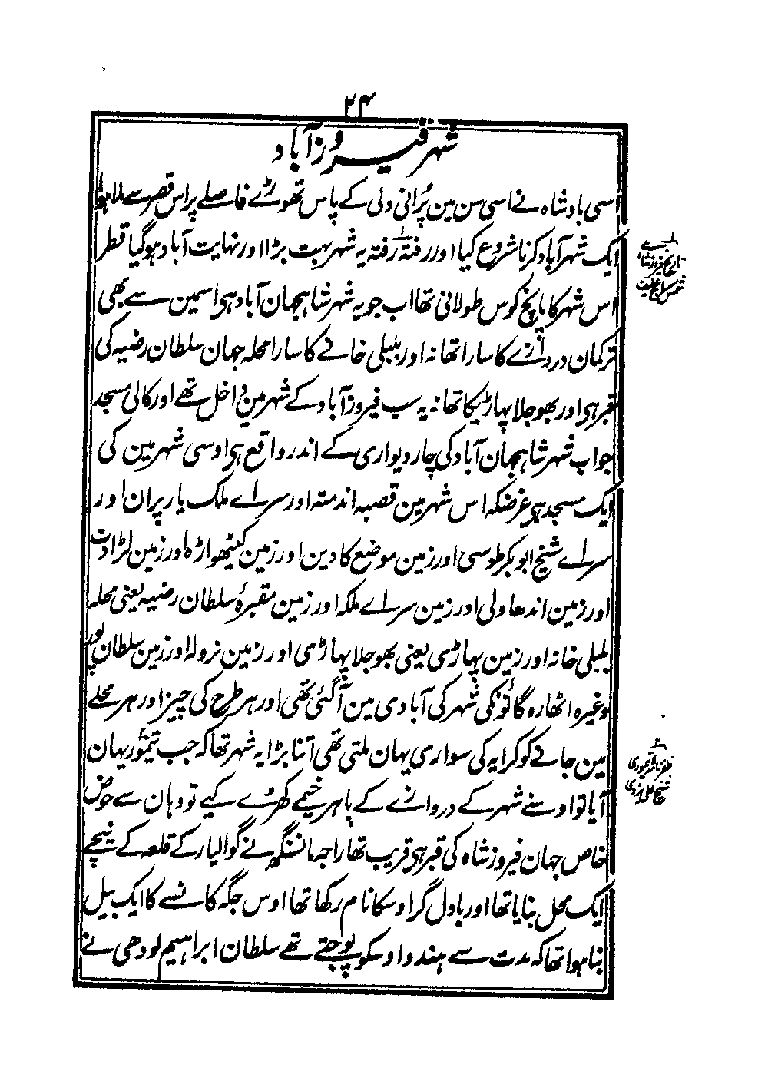 ۲۴
شہر فیروزآباد
اسی بادشاہ نے اسی سن مین پُرانی دلی کے پاس تھوڑے فاصلے پر اس قصر سے ملا ہوا
ایک شہر آباد کرنا شروع کیا اور رفتہ رفتہ یہ شہر بہت بڑا اور نہایت آباد ہوگیا قطر
اس شہر کا پانچ کوس طولانی تھا اب جو یہ شہر شاہجہان آباد ہی اسمین سے بھی
ترکمان دروازے کا سارا تھانہ اور بلبلی خانے کا سارا محلہ جہان سلطان رضیہ کی
قبر ہی اور بھوجلا پہاڑیکا تھانہ یہ سب فیروزآباد کے شہر مین داخل تھے اور کالی مسجد
جو اب شہر شاہجہان آباد کی چار دیواری کے اندر واقع ہی اوسی شہر مین کی
ایک مسجد ہی غرضکہ اس شہر مین قصبہ اندمتہ اور سراے ملک یار پران اور
سراے شیخ ابوبکر طوسی اور زمین موضع کا دین اور زمین کیٹھواڑہ اور زمین لڑادت
اور زمین اندھاولی اور زمین سراے ملکہ اور زمین مقبرۂ سلطان رضیہ یعنی محلہ
بلبلی خانہ اور زمین پہاڑی یعنی بھوجلا پہاڑی اور زمین نرولہ اور زمین سلطان پور
وغیرہ اٹھارہ گانوکی شہر کی آبادی مین آگئی تھی اور ہر طرح کی چیز اور ہر محلے
مین جانے کو کرایہ کی سواری یہان ملتی تھی اتنا بڑا یہ شہر تھا کہ جب تیمور یہان
آیا تو اوسنے شہر کے دروازے کے باہر خیمے کھڑے کیے تو وہان سے حوض
خاص جہان فیروز شاہ کی قبر ہی قریب تھا راجہ مانسنگہ نے گوالیار کے قلعہ کے نیچے
ایک محل بنایا تھا اور بادل گر اوسکا نام رکھا تھا اوس جگہ کانسے کا ایک بیل
بنا ہوا تھا کہ مدت سے ہندو اوسکو پوجتے تھے سلطان ابراہیم لودھی نے
تاریخ فیروز شاہ